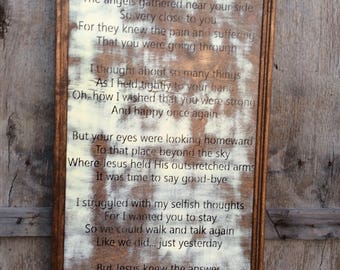 The angels gathered near your side
So very close to you
For they knew the pain and suffering
That you were going through
I thought about so many things
As I held tightly to your hand
Oh, how I wished that you were strong
And happy once again
But your eyes were looking homeward
To that place beyond the sky
Where Jesus held His outstretched arms
It was time to say good-bye
I struggled with my selfish thoughts
For I wanted you to stay
So we could walk and talk again
Like we did... just yesterday
But Jesus knew the answer